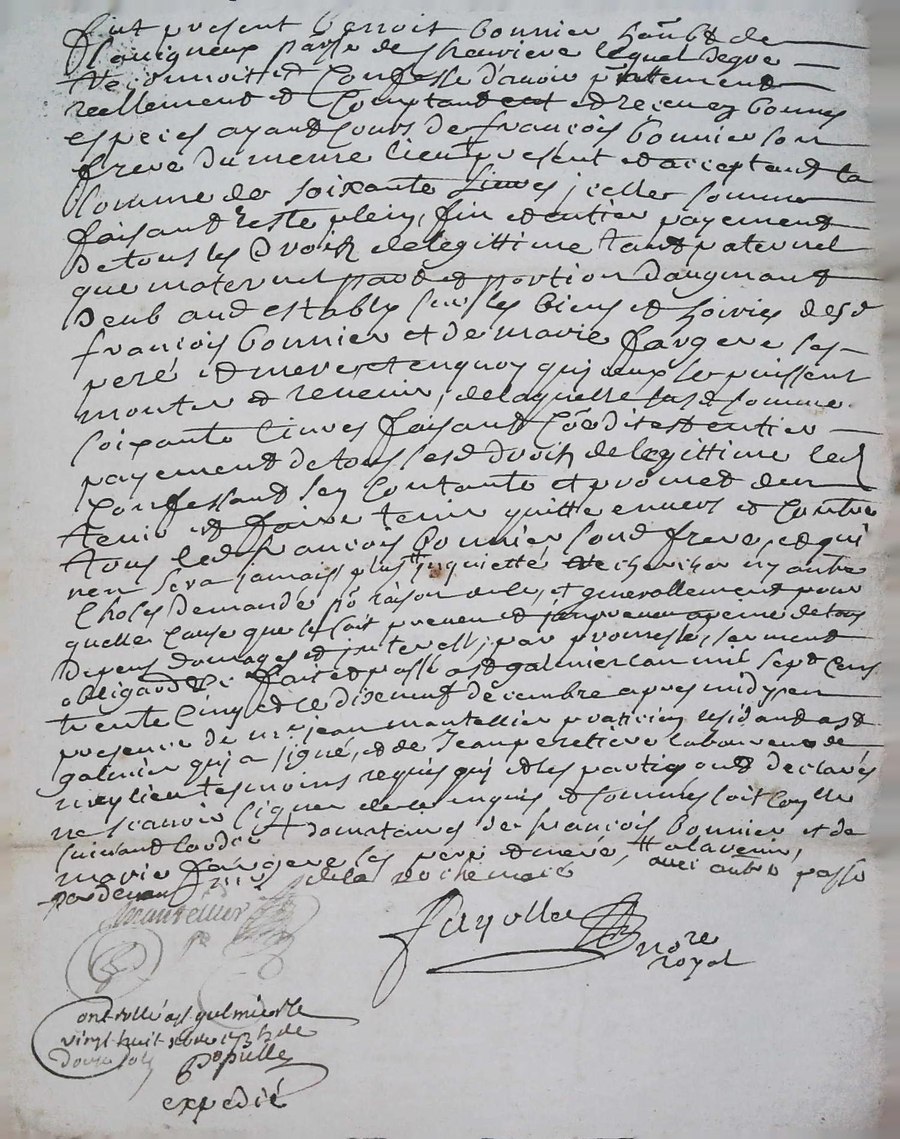 fut present Benoit Bonnier habt de
Louigneux parsse de Cheuriere lequel de gre
Reconnoit et Confesse d'auoir
reellement et Comptand eut et receu en bonnes
especes ayand Cours de francois Bonnier son
frere du meme lieu present et acceptand la
somme de soixante Liures jcelles somme
faisand reste plein, fin et entier payement
de tous les droits de legittime tand paternel
que maternel pard et portion d'augmand
deub and estably sur les biens et hoiries desd
francois Bonnier et de marie fargere ses
pere et mere et en quoy qui jceux se puissent
monter et reuenir, de laquelle susd somme
soixante Liures faisand Co͞e dit est entier
payement de tous sesd droits de legittime led
Confessand sen Contante et promet d'en
tenir et faire tenir quitte enuers et Contre
tous led francois Bonnier sond frere, et qui
n'en sera jamais plus # inquietté Recherché ny autre
Choses demandé po raison de ce, et generallement pour
quelle Cause que ce soit a peine de tous
depens domages et interests, par promesse, serment
obligaon &c faict et passé a st galmier Lan mil sept Cens
trente Cinq et le dixneuf decembre apres midy en
presence de me jean mantellier praticien residand a st
galmier qui a signé, et de Jean laboureur de
meylieu tesmoins requis qui et les parties ond declarés
ne scauoir signer de ce enquis et sommés soit Conlle
suiuand Lordce # domataires de francois Bonnier et de
marie fargere ses pere et mere, # a lauenir,
pardeuan de la rochemaie auec autre passé
Mantellier
fayolle nore
royal
Controllé a st galmier le
vingt huit xbre 1735 Rs de
Douze sols
Populle
expedié